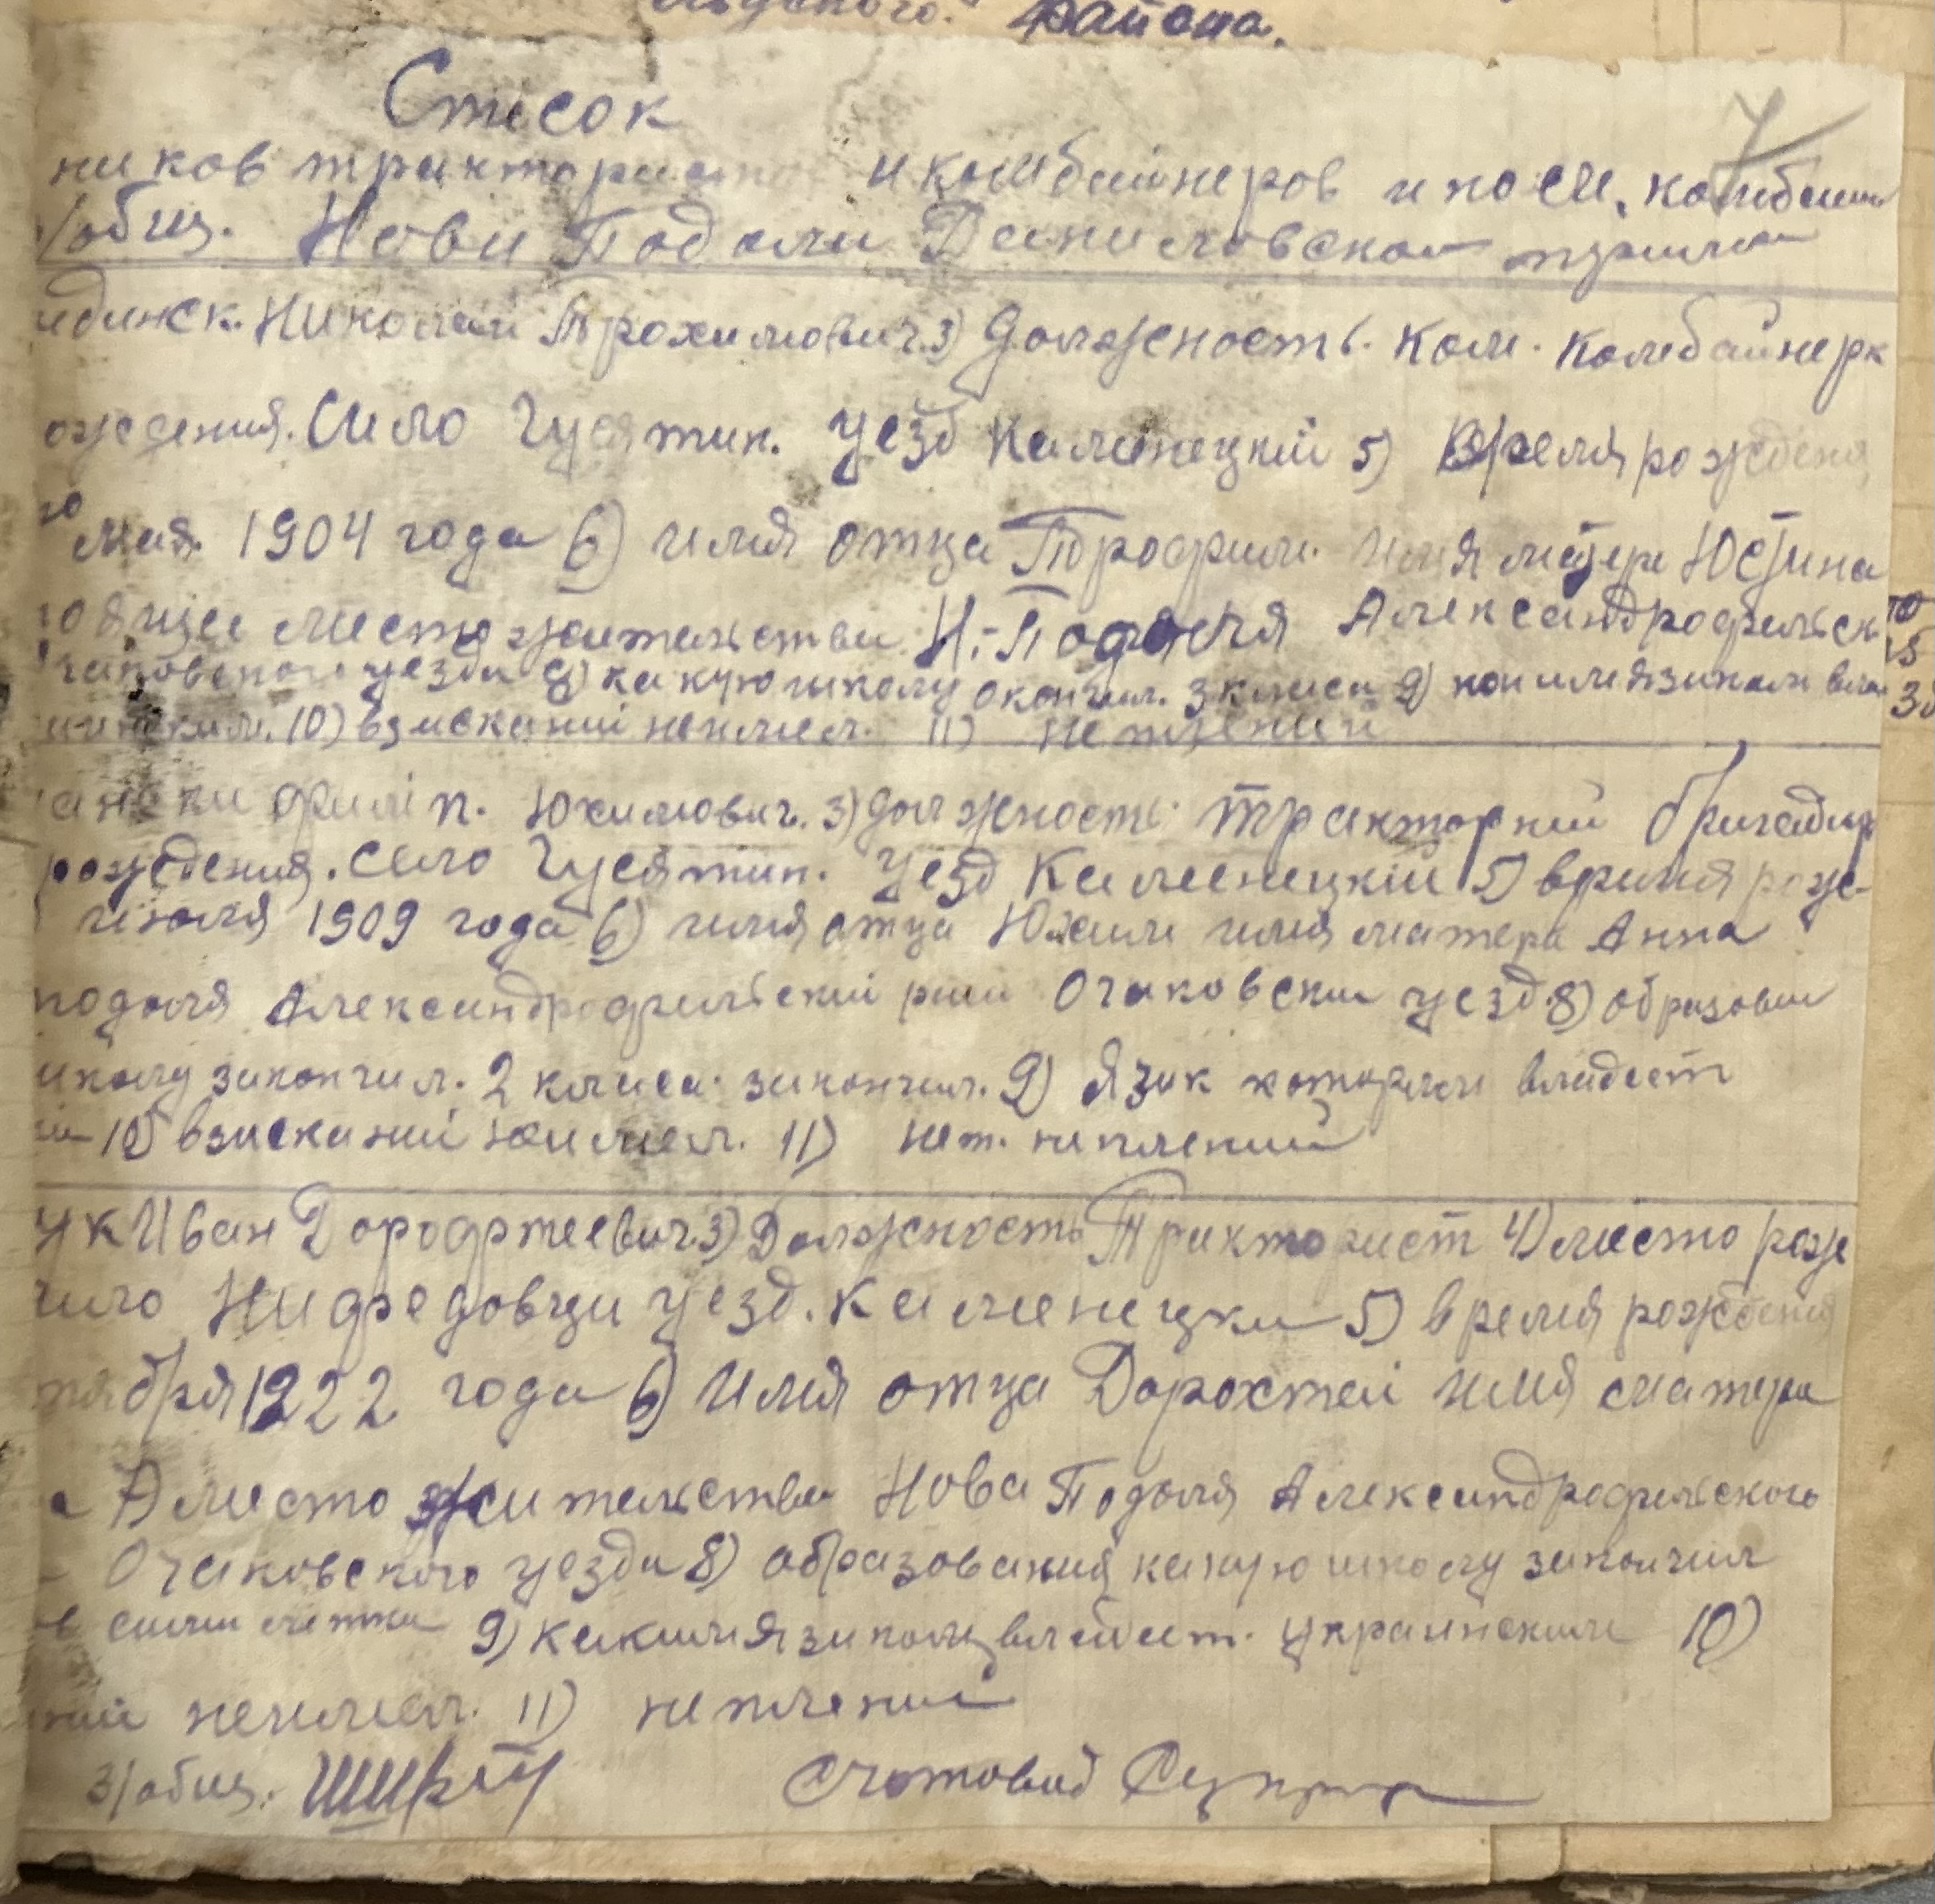 района.
Список
ников трактористо и комбайнеров и пом. комбаин
з/общ. Нови Подоли Даниловской
Николай Трохимович. 3) Должность. Ком. Комбайнерк
ождения. Село Гусятин. Уезд Каменецкий 5) Время рождения
мая. 1904 года 6) имя отца Трофим. Имя матере Юстина
место жительства Н.-Подоля Александрофельск
уезда 8) какую школу окончил. 3 класа 9)
10) взисканий неимел. 11)
филіп. Юхимович. 3) должность. Тракторний бригадир
рождения. село Гусятин. Уезд Каменецкий 5) время рож-
июля 1909 года 6) имя отца Юхим имя матера Анна
подоля Александрофельский раи Очаковски уезд 8) образован
школу закончил. 2 класа закончил. 9) Язик которим владеет
10) взисканий неимел. 11) нет.
ук Иван Дорофтеевич. 3) Должность Тракторист 4) место рож
село Нифедовци уезд. Каменецки 5) время рождения
тября 1922 года 6) Имя отца Дорохтей имя матери
а 7) место жительства Нова Подоля Александрофельского
Очаковского уезда 8) образования какую школу закончил
9) каким язиком владеет. украинским 10)
ний неимел. 11)
З/общ. Счотовод